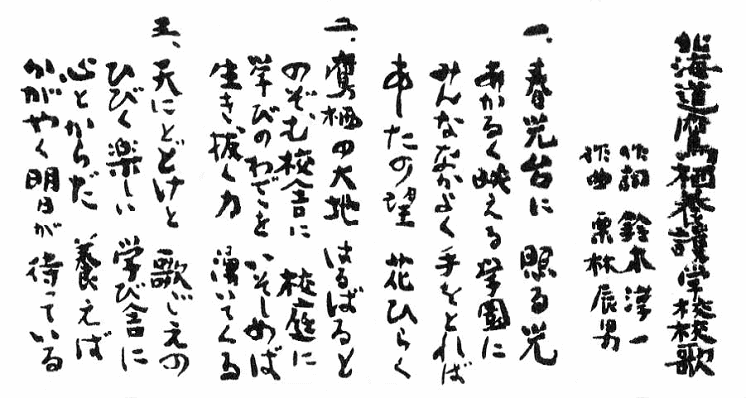 北海道鷹栖養護学校校歌
作詞 鈴木漠一
作曲 栗林辰男
一、春光台に 照る光
あかるく映える学園に
みんななかよく手をとれば
あしたの理 花ひらく
二、鷹栖の大地 はるばると
のぞむ校舎に 校庭に
学びのわざを いそしめば
生き抜く力 湧いてくる
三、天にとどけと 歌ごえの
ひびく楽しい 学び舎に
心とからだ 養えば
かがやく明日が 待っている